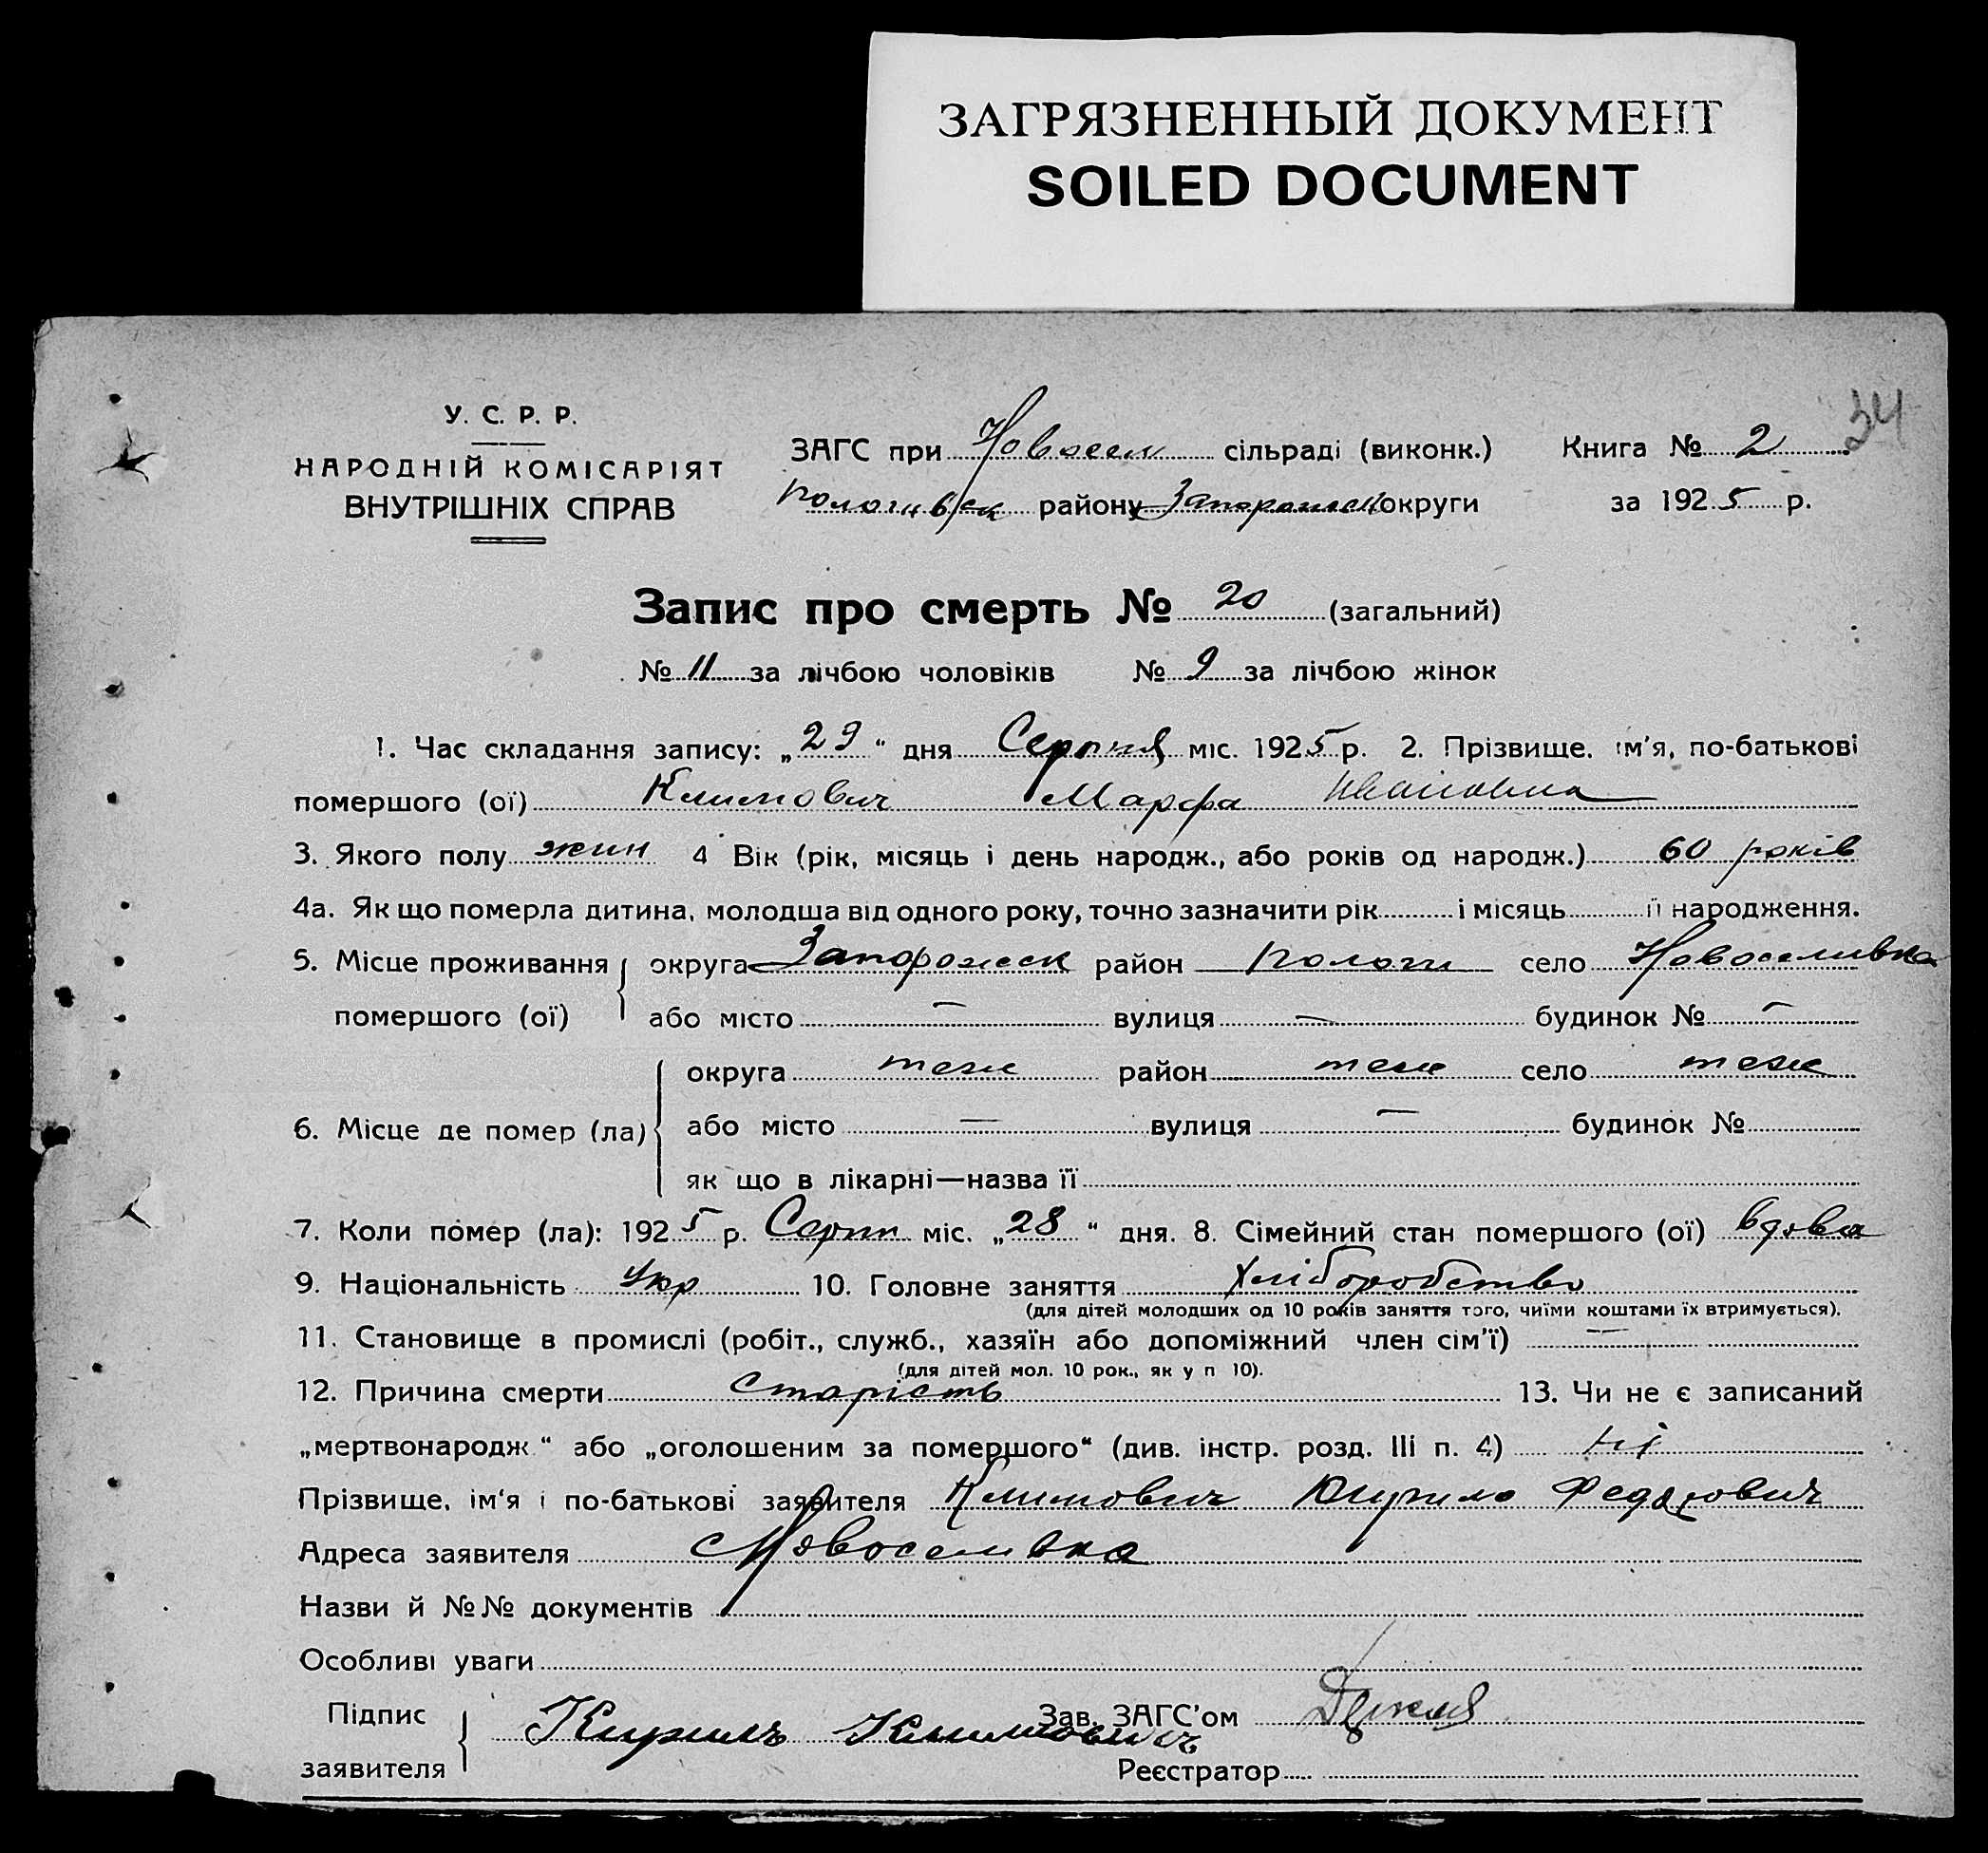 ЗАГРЯЗНЕННЫЙ ДОКУМЕНТ
SOILED DOCUMENT
34
У. С. Р. Р.
НАРОДНІЙ КОМІСАРІЯТ
ВНУТРІШНІХ СПРАВ
ЗАГС при Новосел сільраді (виконк.) Книга № 2
Пологивск району Запорожск округи за 1925 р.
Запис про смерть № 20 (загальний)
№ 11 за лічбою чоловіків № 9 за лічбою жінок
1. Час складання запису: „29“ дня Серпня міс. 1925 р. 2. Прізвище, ім'я, по-батькові
помершого (ої) Климович Марфа Ивановна
3. Якого полу жин 4 Вік (рік, місяць і день народж., або років од народж.) 60 років
4а. Як що померла дитина, молодша від одного року, точно зазначити рік і місяць її народження.
5. Місце проживання помершого (ої) округа Запорожск район Пологи село Новоселивка
або місто — вулиця — будинок № —
6. Місце де помер (ла) округа теж район теж село теж
або місто — вулиця — будинок №
як що в лікарні—назва її
7. Коли помер (ла): 1925 р. Серпн міс. „28“ дня. 8. Сімейний стан помершого (ої) вдова
9. Національність Укр 10. Головне заняття Хліборобство
(для дітей молодших од 10 років заняття того, чиїми коштами їх втримується).
11. Становище в промислі (робіт., служб., хазяїн або допоміжний член сім'ї) —
(для дітей мол. 10 рок., як у п 10).
12. Причина смерти старість 13. Чи не є записаний
„мертвонародж.“ або „оголошеним за помершого“ (див. інстр. розд. III п. 4) ні
Прізвище, ім'я і по-батькові заявителя Климович Кирило Федорович
Адреса заявителя Новоселивка
Назви й №№ документів
Особливі уваги
Підпис заявителя Кирилъ Климовичъ Зав. ЗАГС'ом
Реєстратор